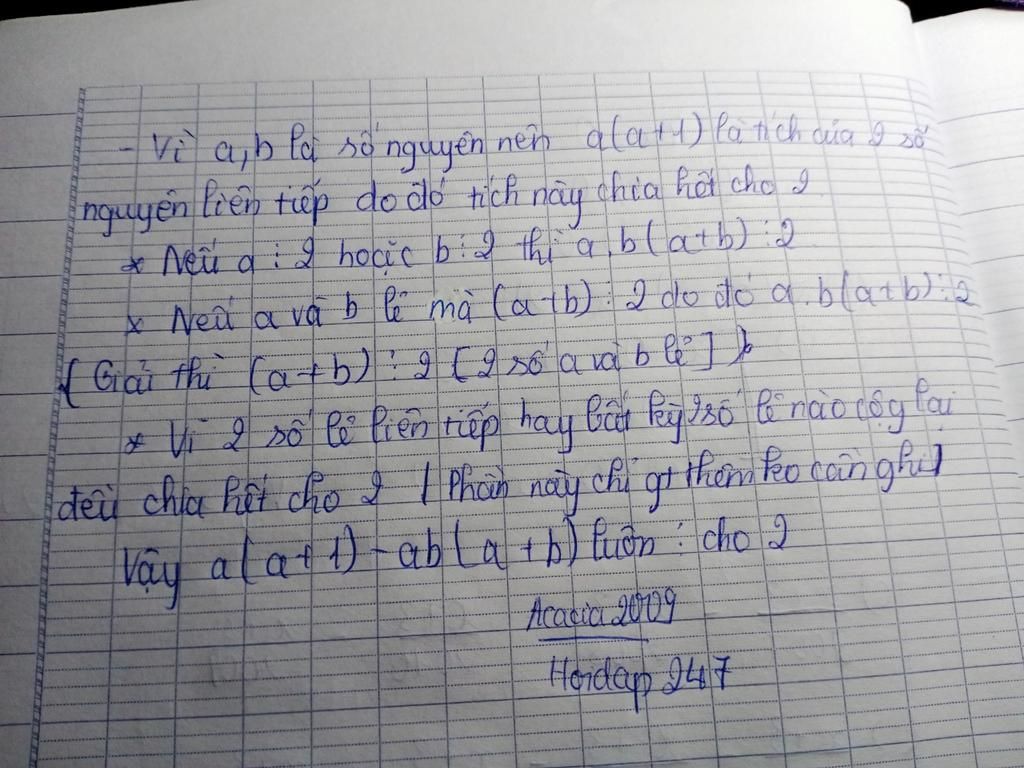 - Vì a,b là số nguyên nên a(a+1) là tích của 2 số
nguyên liên tiếp do đó tích này chia hết cho 2
* Nếu a ⋮ 2 hoặc b ⋮ 2 thì a.b(a+b) ⋮ 2
* Nếu a và b lẻ mà (a+b) ⋮ 2 do đó a.b(a+b) ⋮ 2
{ Giải thì (a+b) ⋮ 2 [ 2 số a và b lẻ ] }
* Vì 2 số lẻ liên tiếp hay bất kỳ 2 số lẻ nào cộg lại
đều chia hết cho 2 ( Phần này chỉ gt thêm ko cần ghi )
Vậy a(a+1) - ab(a+b) luôn ⋮ cho 2
Acacia 2009
Hoidap 247